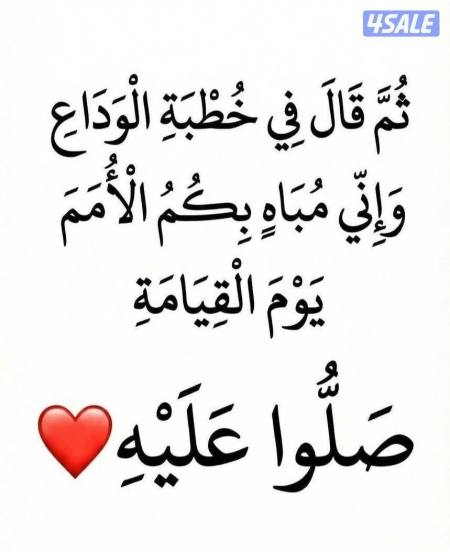 4SALE
ثُمَّ قَالَ فِي خُطْبَةِ الْوَدَاعِ
وَإِنِّي مُبَاهٍ بِكُمُ الْأُمَمَ
يَوْمَ الْقِيَامَةِ
صَلُّوا عَلَيْهِ❤️